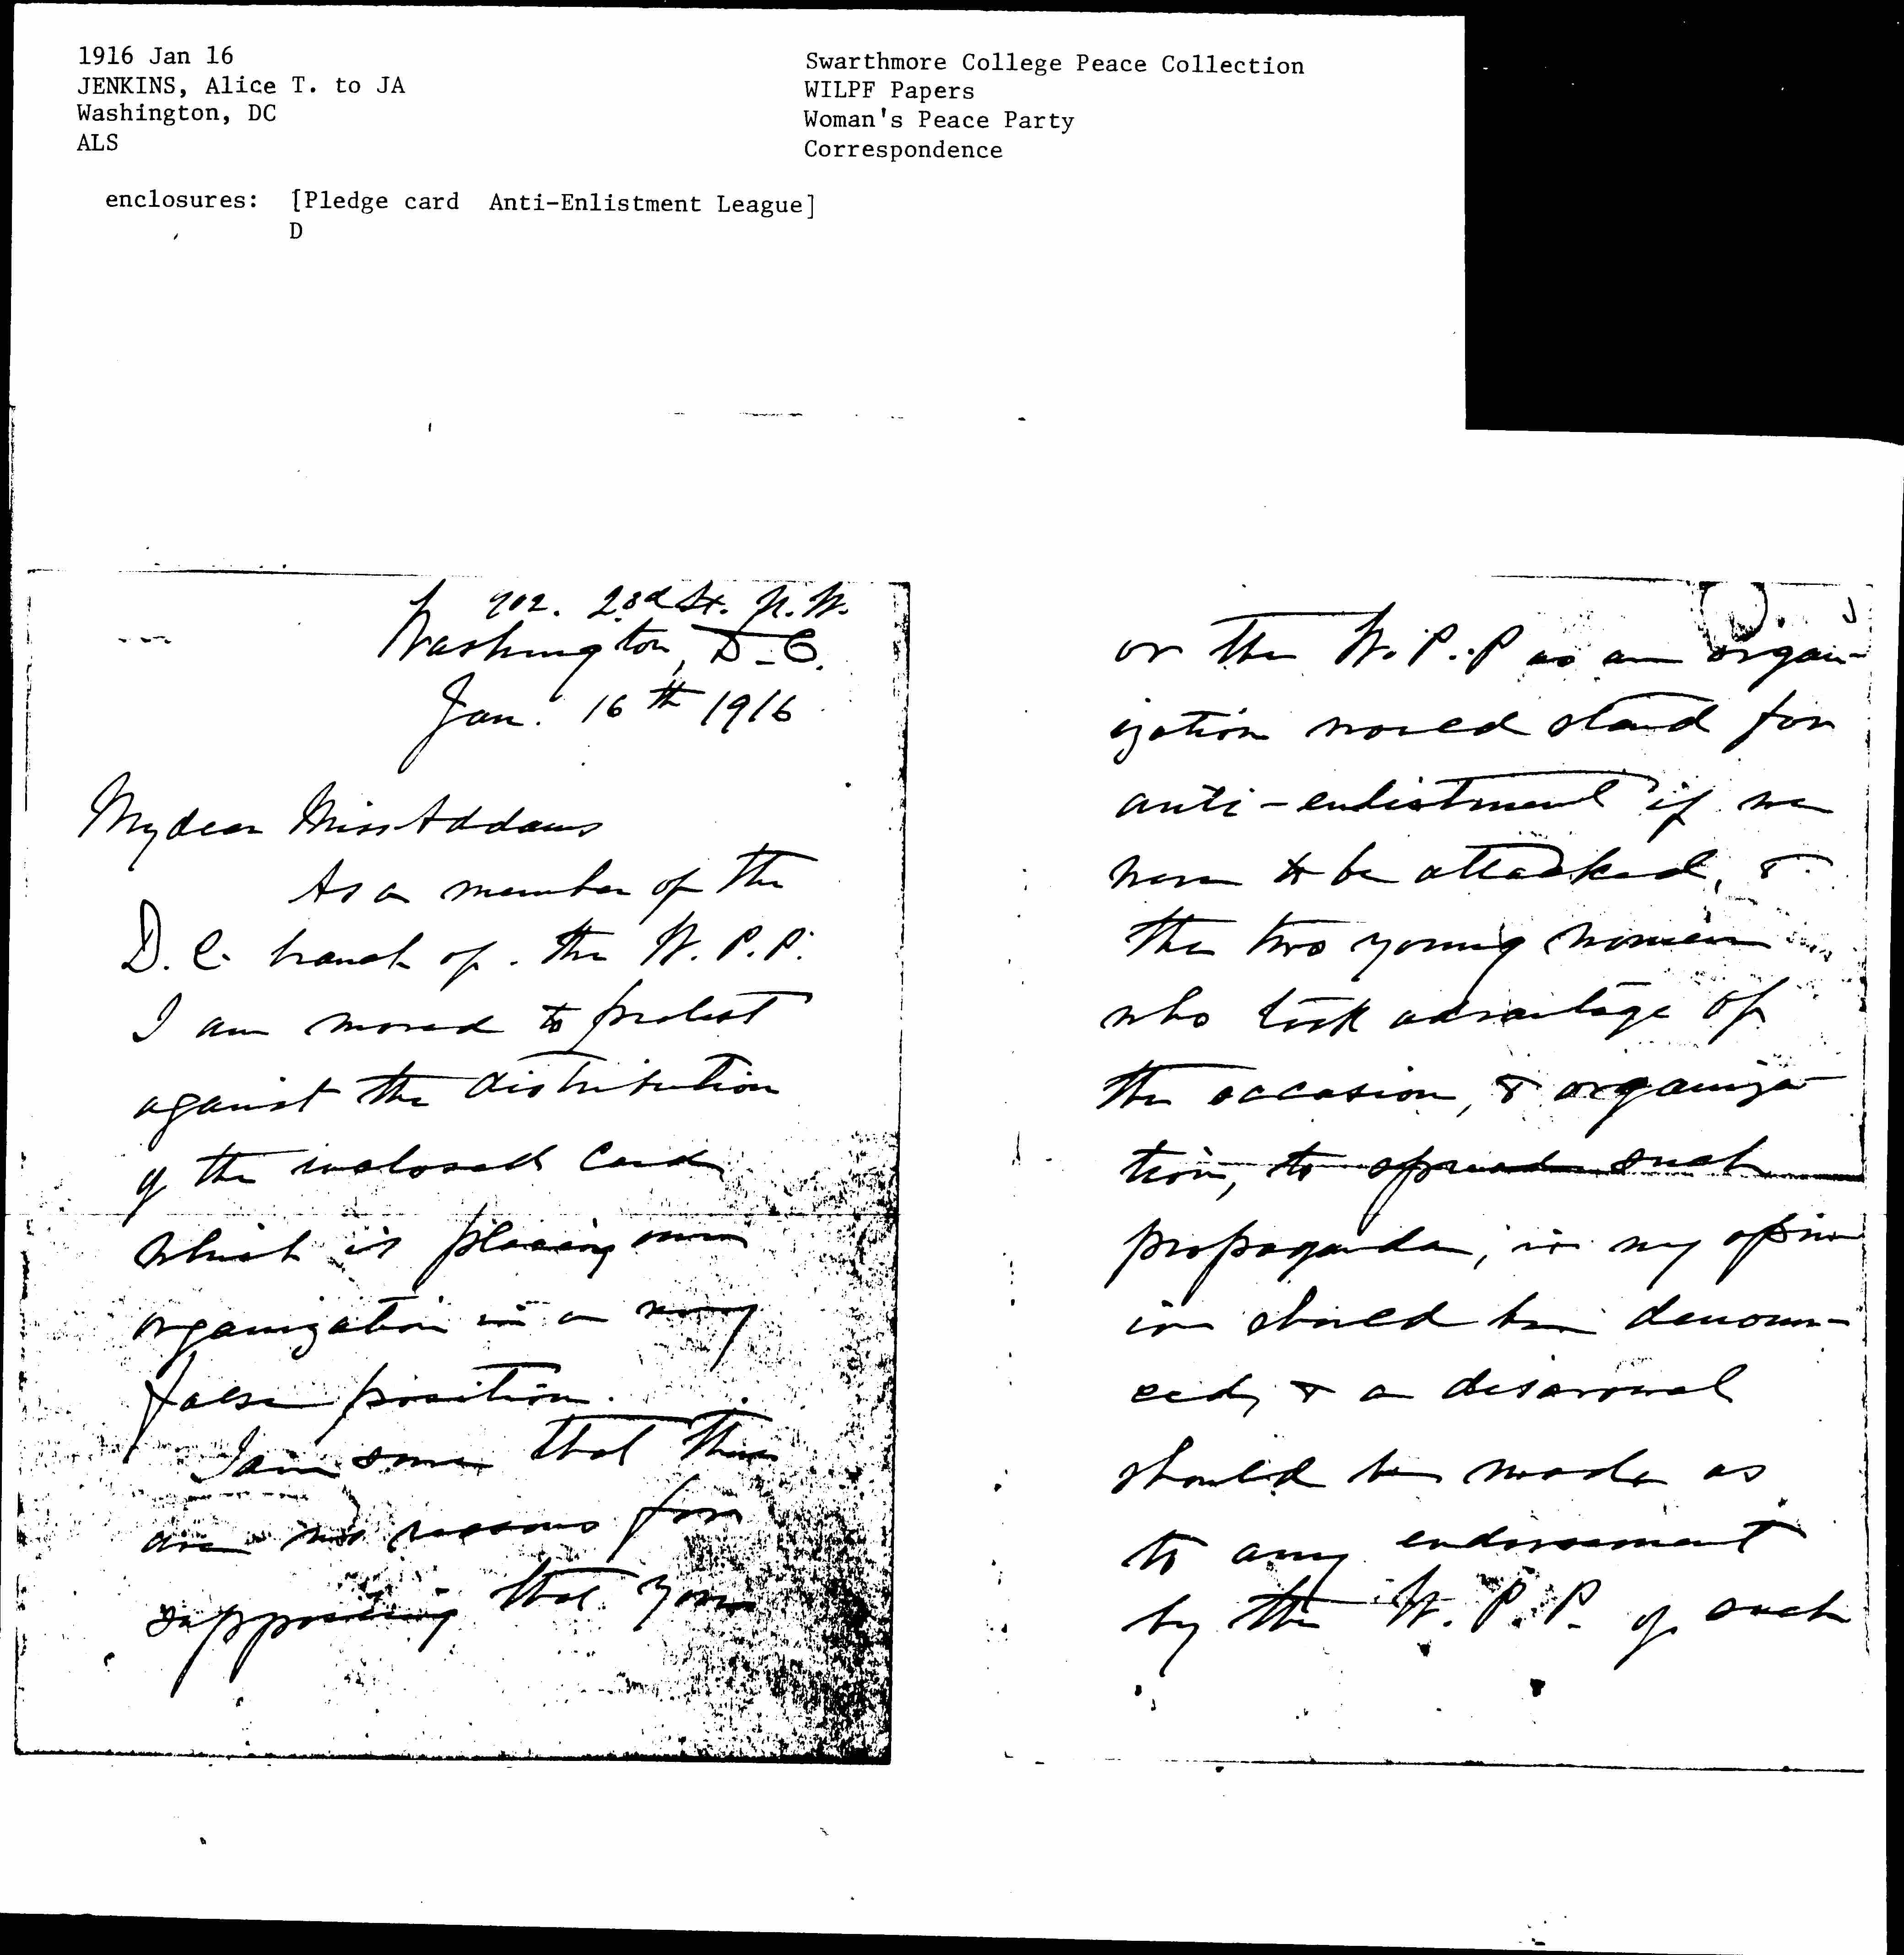 1916 Jan 16
JENKINS, Alice T. to JA
Washington, DC
ALS
Swarthmore College Peace Collection
WILPF Papers
Woman's Peace Party
Correspondence
enclosures: [Pledge card Anti-Enlistment League]
D
23rd St. N.W.
Washington, D.C.
Jan. 16th 1916
My dear Miss Addams
As a member of the
D.C. branch of the W.P.P.
I am moved to protest
against the distribution
of the inclosed card
which is placing our
organization in a very
false position.
I am sure that there
are no reasons for
supposing that you
or the W.P.P as an organ-
ization would stand for
anti-enlistment if we
were to be attacked, &
the two young women
who took advantage of
the occasion, & organiza
tion, to spread such
propaganda, in my opin
ion should be denoun-
ced, & a disavowal
should be made as
to any endorsement
by the W.P.P. of such